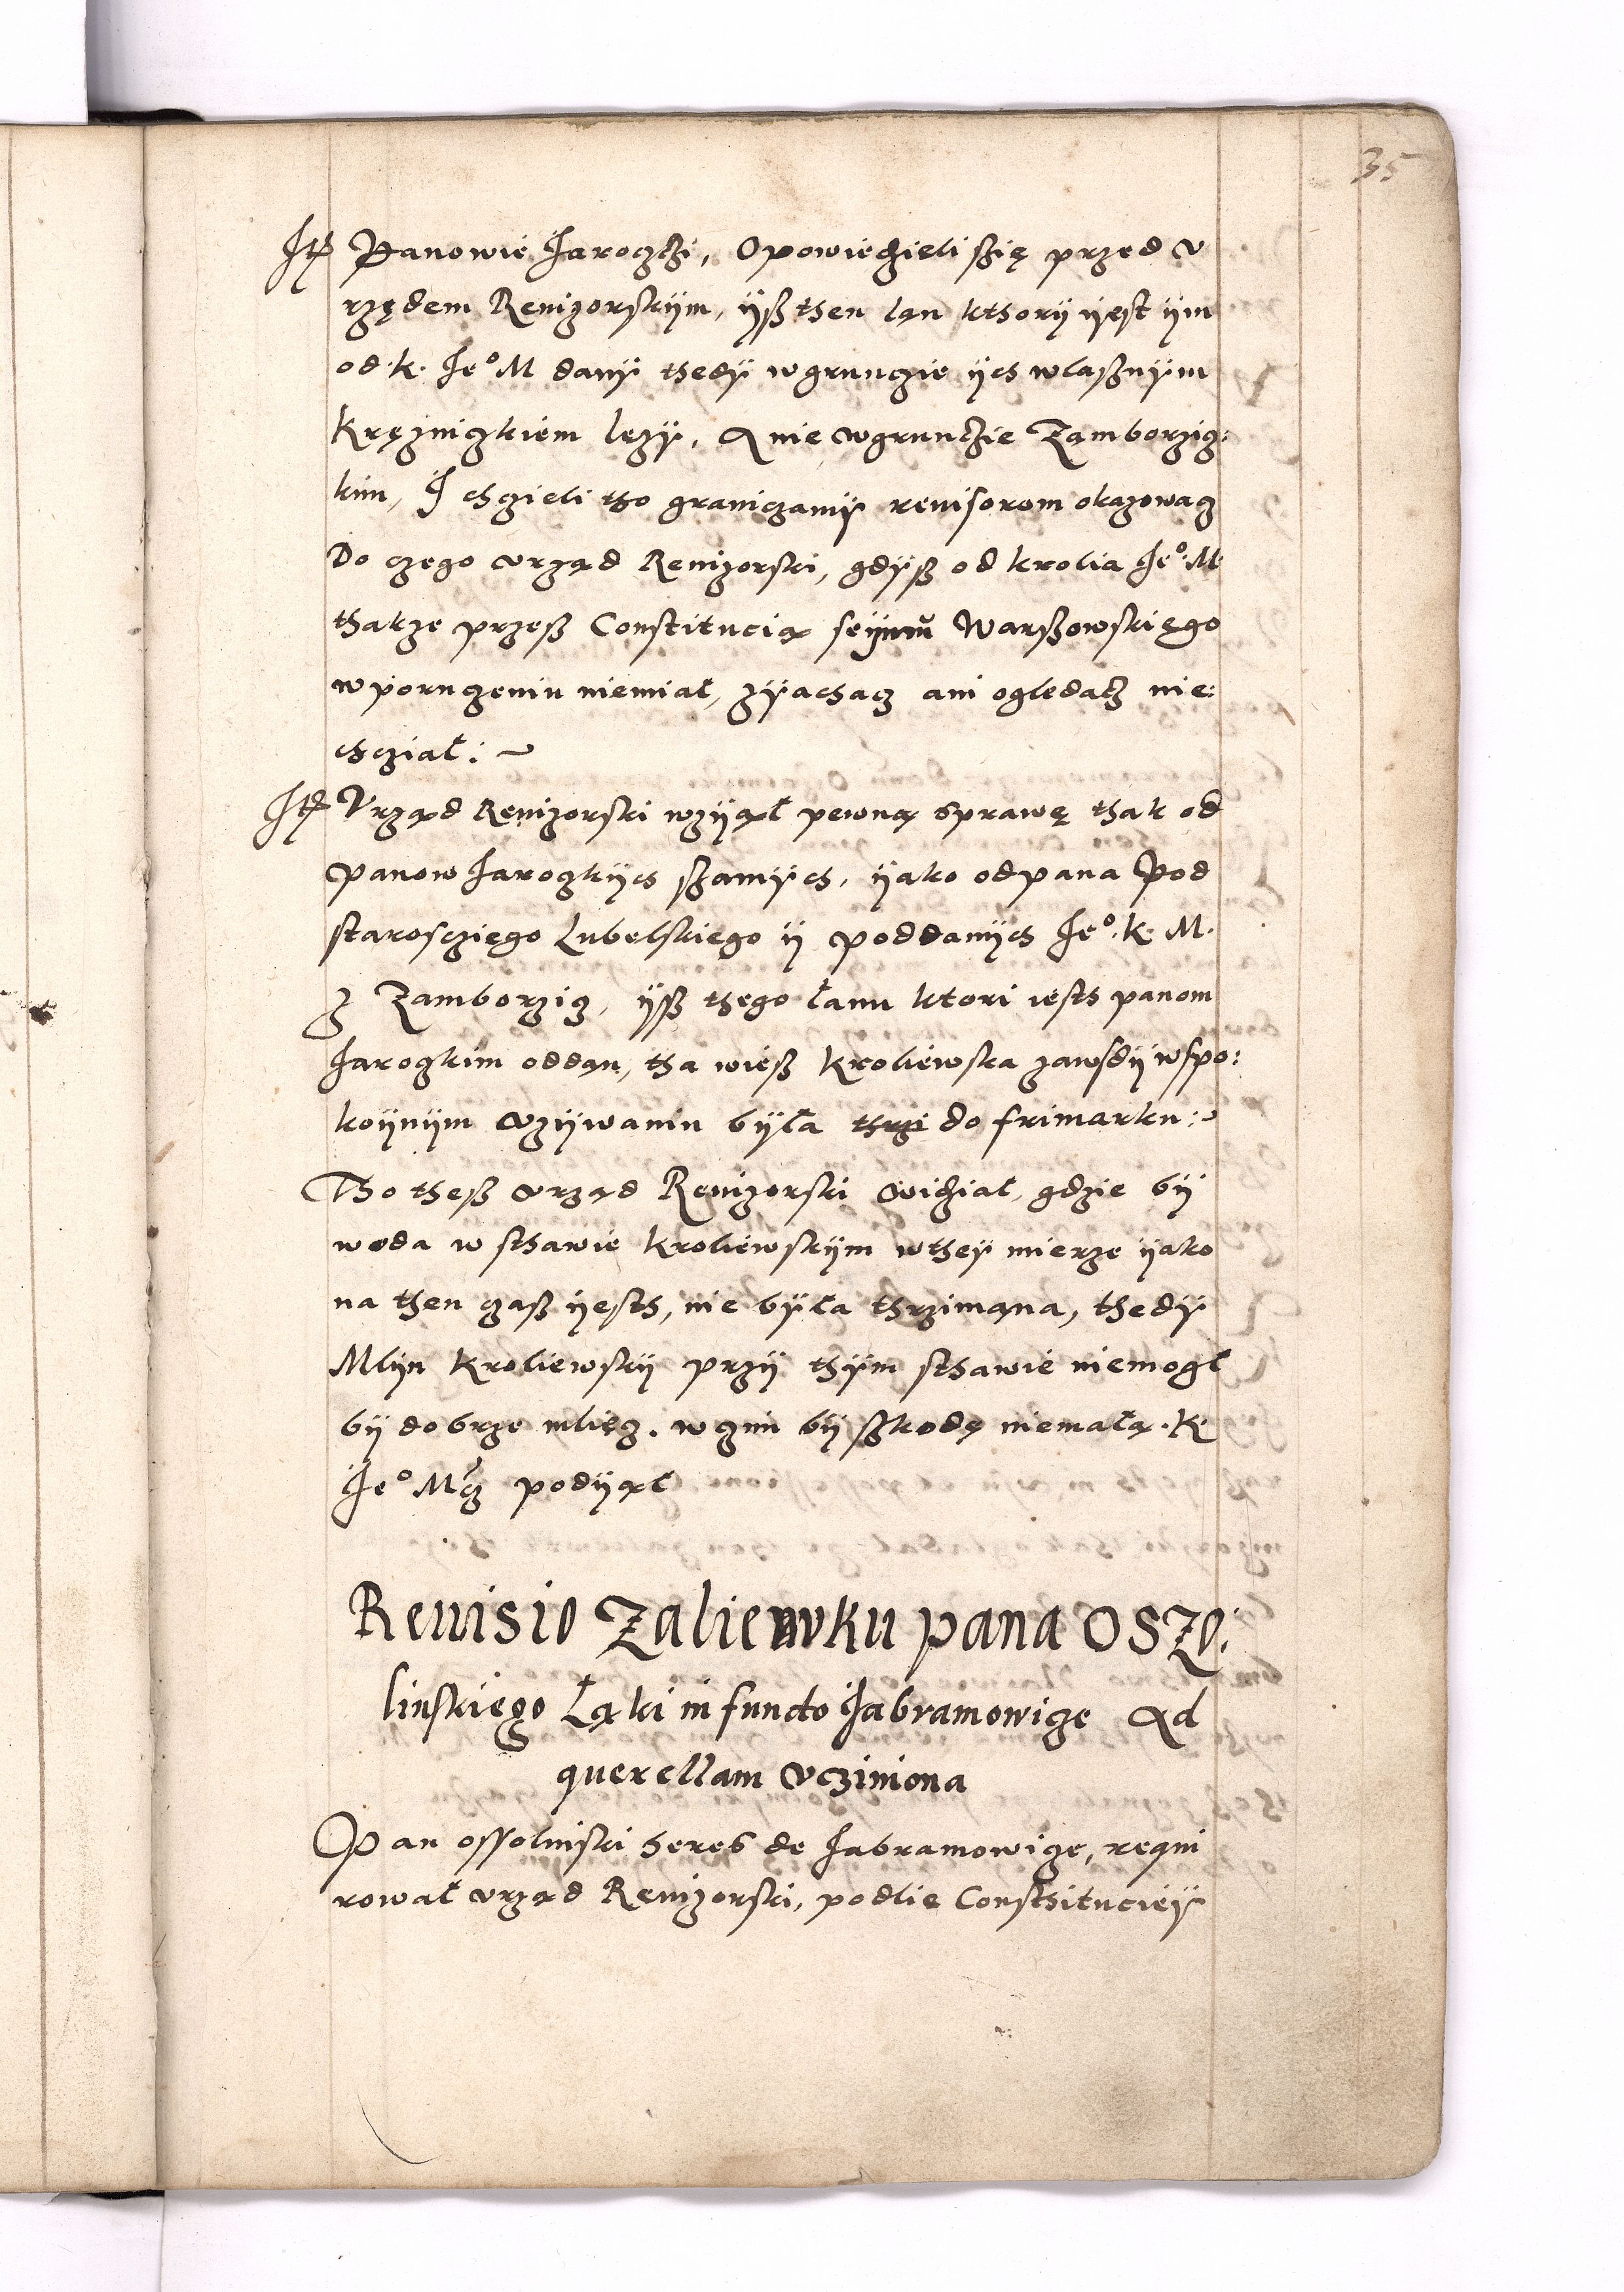 35
Itẽ Panowie Jaroczczi, Opowiedzieli szię przed v
rzędem Revizorskÿm, ÿß then lan kthorÿ ÿest ÿm
od k. Je° M danÿ thedÿ w grunczie ÿch wlasznÿm
Krężniczkiem leżÿ, A nie w grunczie Zamborzicz:
kim, I chczieli tho graniczamÿ revisorom okazowacz
Do czego vrząd Revizorski, gdÿß od krolia Je°: M.
thakze przeß Constitucią seÿmu Warszowskięgo
w poruczeniu niemiał, zÿachacz ani oględacz nie:
chcział:
Itẽ Vrząd Revizorski wzÿął pewną sprawę thak od
panow Jaroczkÿch szamÿch, ÿako od pana Pod
staroscziego Lubelskiego ÿ poddanÿch Je°. K. M.
z Zamborzicz, ÿß thego łanu ktori iesth panom
Jaroczkim oddan, tha wieß Kroliewska zawsdÿ w spo:
koÿnÿm vżÿwaniu bÿła thrzi do frimarku:
Tho theß vrząd Revizorski widział, gdzie bÿ
woda w sthawie Kroliewskÿm w theÿ mierze ÿako
na then czaß ÿesth, nie bÿła thrzimana, thedÿ
Mlÿn Kroliewskÿ przÿ thÿm sthawie niemogł
bÿ dobrze mliecz. w czim bÿ szkodę niemałą. K.
Je° Mcz podÿął
Revisio Zaliewku pana Oszo:
linskiego Łąki in fundo Jabramowicze Ad
querellam vcziniona
Pan ossolinski heres de Jabramowicze, requi
rował vrząd Revizorski, podlie Consthitucieÿ